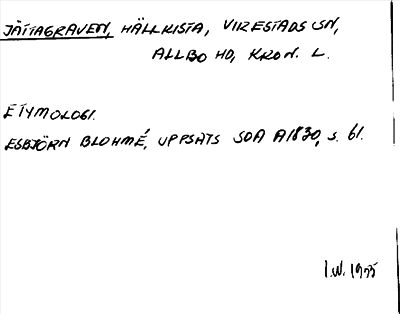 JÄTTAGRAVEN, HÄLLKISTA, VIRESTADS SN,
ALLBO HD, KRON. L.
ETYMOLOGI.
ESBJÖRN BLOHMÉ, UPPSATS SOA A1830, S. 61.
I.W. 1975